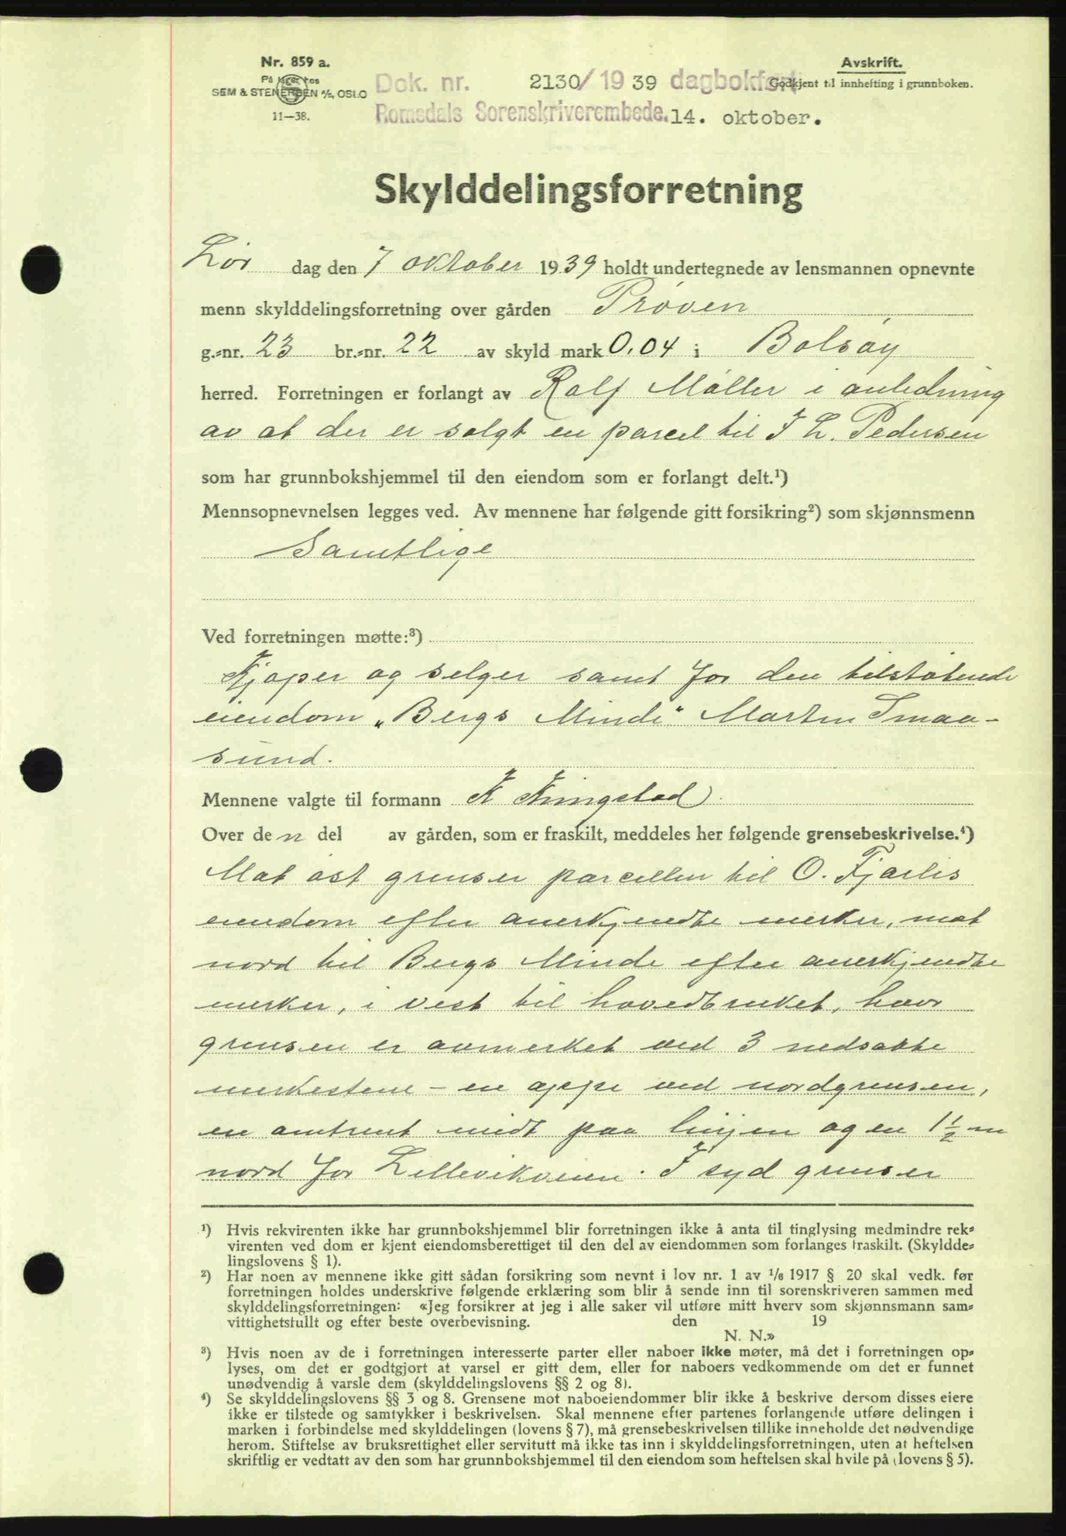 Nr. 859 a.
SEM & STENERSEN A/S, OSLO
11—38.
Dok. nr. 2130/1939 dagbokført
Romsdals Sorenskriverembede. 14. oktober.
Avskrift.
Godkjent til innhefting i grunnboken.
Skylddelingsforretning
Lør dag den 7 oktober 1939 holdt undertegnede av lensmannen opnevnte
menn skylddelingsforretning over gården Prøven
g.-nr. 23 br.-nr. 22 av skyld mark 0.04 i Bolsøy
herred. Forretningen er forlangt av Rolf Møller i anledning
av at der er solgt en parcel til J L. Pedersen
som har grunnbokshjemmel til den eiendom som er forlangt delt.¹)
Mennsopnevnelsen legges ved. Av mennene har følgende gitt forsikring²) som skjønnsmenn
Samtlige
Ved forretningen møtte:³)
Kjøper og selger samt for den tilstøtende
eiendom „Bergs Minde" Marten Smaa-
sund.
Mennene valgte til formann K Kringstad
Over den del av gården, som er fraskilt, meddeles her følgende grensebeskrivelse.⁴)
Mot øst grenser parcellen til O. Fjærlis
eiendom efter anerkjendte merker, mot
nord til Bergs Minde efter anerkjendte
merker, i vest til hovedbruket, hvor
grensen er avmerket ved 3 nedsatte
merkestene – en oppe ved nordgrensen,
en omtrent midt paa linjen og en 1½ m
nord for Lillevikveien. I syd grenser
¹) Hvis rekvirenten ikke har grunnbokshjemmel blir forretningen ikke å anta til tinglysing medmindre rek-
virenten ved dom er kjent eiendomsberettiget til den del av eiendommen som forlanges fraskilt. (Skyldde-
lingslovens § 1).
²) Har noen av mennene ikke gitt sådan forsikring som nevnt i lov nr. 1 av 1/6 1917 § 20 skal vedk. før
forretningen holdes underskrive følgende erklæring som blir å sende inn til sorenskriveren sammen med
skylddelingsforretningen: «Jeg forsikrer at jeg i alle saker vil utføre mitt hverv som skjønnsmann sam-
vittighetsfullt og efter beste overbevisning. den 19
N. N.»
³) Hvis noen av de i forretningen interesserte parter eller naboer ikke møter, må det i forretningen op-
lyses, om det er godtgjort at varsel er gitt dem, eller for naboers vedkommende om det er funnet
unødvendig å varsle dem (skylddelingslovens §§ 2 og 8).
⁴) Se skylddelingslovens §§ 3 og 8. Grensene mot naboeiendommer blir ikke å beskrive dersom disses eiere
ikke er tilstede og samtykker i beskrivelsen. Skal mennene efter partenes forlangende utføre delingen i
marken i forbindelse med skylddelingen (lovens § 7), må grensebeskrivelsen tillike inneholde det nødvendige
herom. Stiftelse av bruksrettighet eller servitutt må ikke tas inn i skylddelingsforretningen, uten at heftelsen
skriftlig er vedtatt av den som har grunnbokshjemmel til den eiendom som heftelsen skal hvile på (lovens § 5).